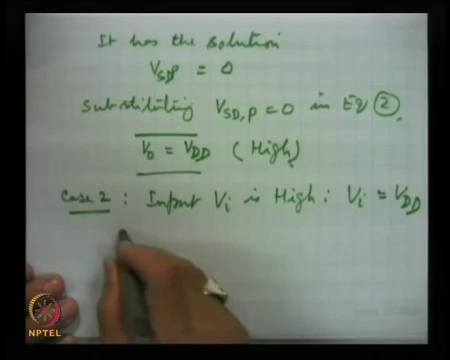 It has the solution
VSDP = 0
Substituting VSD,P = 0 in Eq (2).
Vo = VDD (High)
Case 2 : Input Vi is High : Vi = VDD
NPTEL